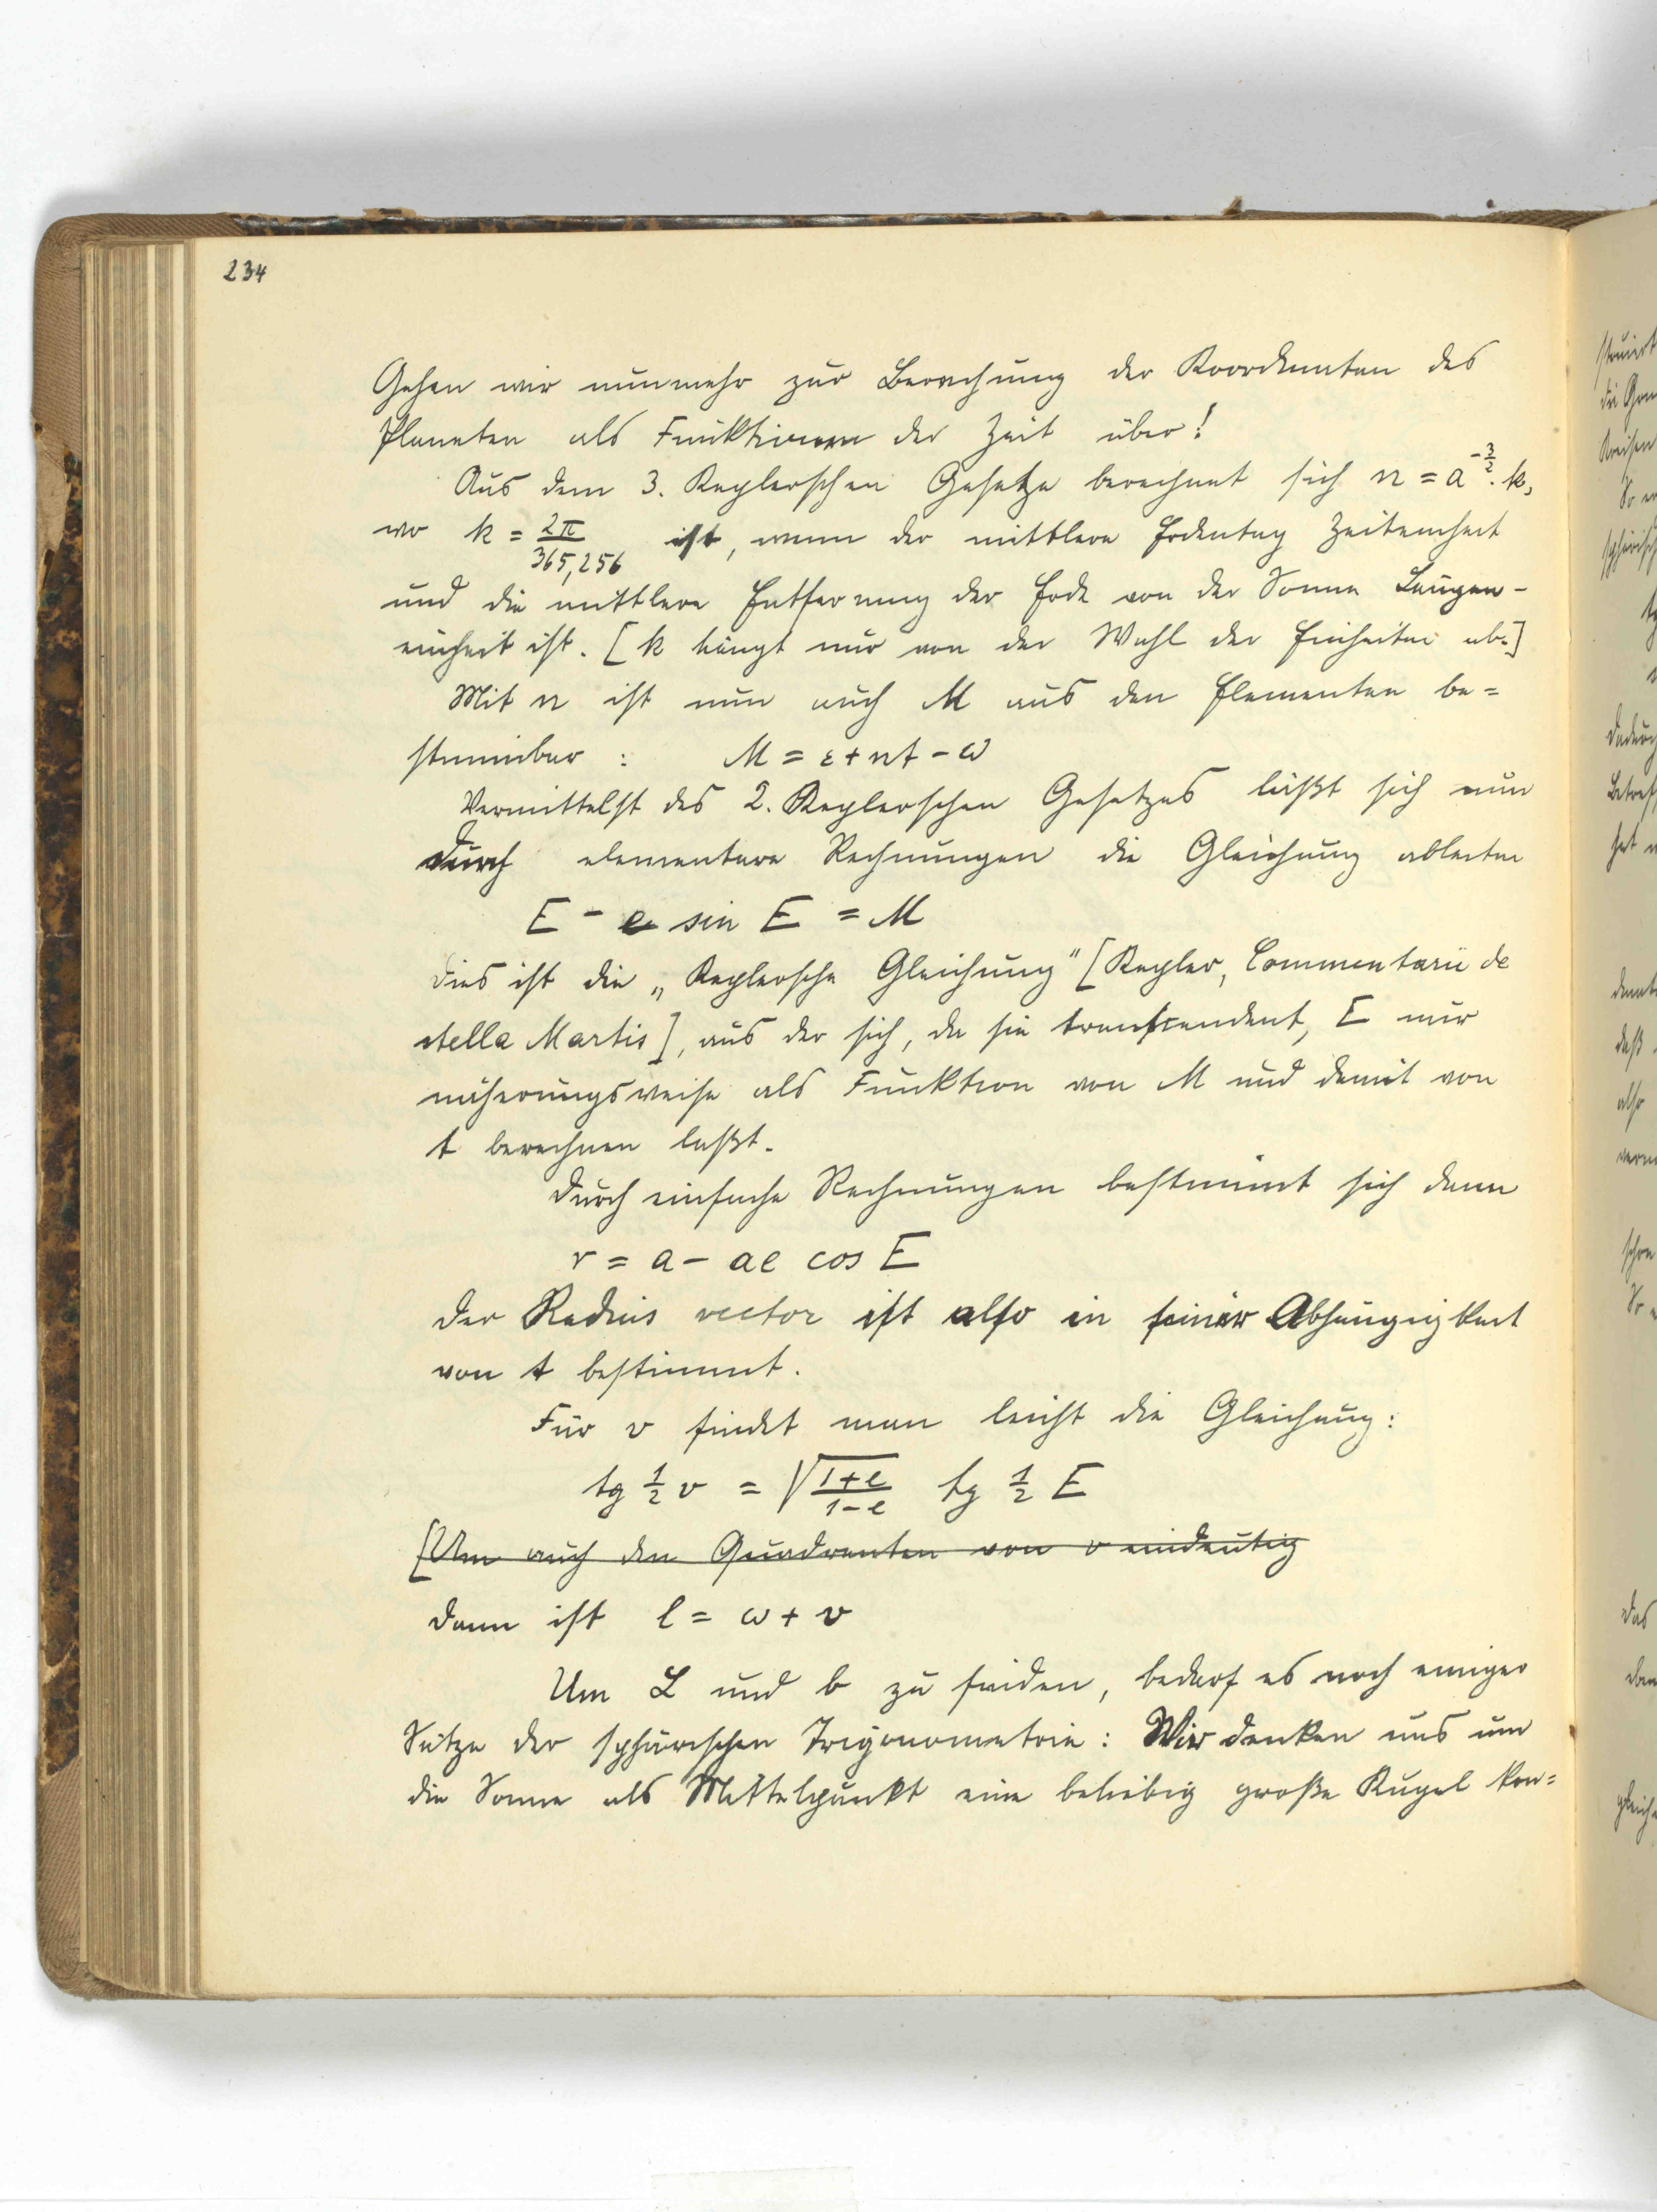 234
Gehen wir nunmehr zur Berechnung der Koordinaten des
Planeten als Funktionen der Zeit über!
Aus dem 3. Keplerschen Gesetze berechnet sich n = a^{-3/2} · k,
wo k = 2π/365,256 ist, wenn der mittlere Erdentag Zeiteinheit
und die mittlere Entfernung der Erde von der Sonne Längen-
einheit ist. [k hängt nur von der Wahl der Einheiten ab.]
Mit n ist nun auch M aus den Elementen be=
stimmbar : M = ε + nt - ω
Vermittelst des 2. Keplerschen Gesetzes läßt sich nun
durch elementare Rechnungen die Gleichung ableiten
E - e sin E = M
Dies ist die „Keplersche Gleichung" [Kepler, Commentarii de
stella Martis], aus der sich, da sie transcendent, E nur
näherungsweise als Funktion von M und damit von
t berechnen laßt.
Durch einfache Rechnungen bestimmt sich dann
r = a - ae cos E
Der Radius vector ist also in seiner Abhängigkeit
von t bestimmt.
Für v findet man leicht die Gleichung:
tg 1/2 v = √(1+e)/(1-e) tg 1/2 E
[Um auch den Quadranten von v eindeutig
Dann ist l = ω + v
Um L und b zu finden, bedarf es noch einiger
Sätze der sphärischen Trigonometrie: Wir denken uns um
die Sonne als Mittelpunkt eine beliebig große Kugel kon=